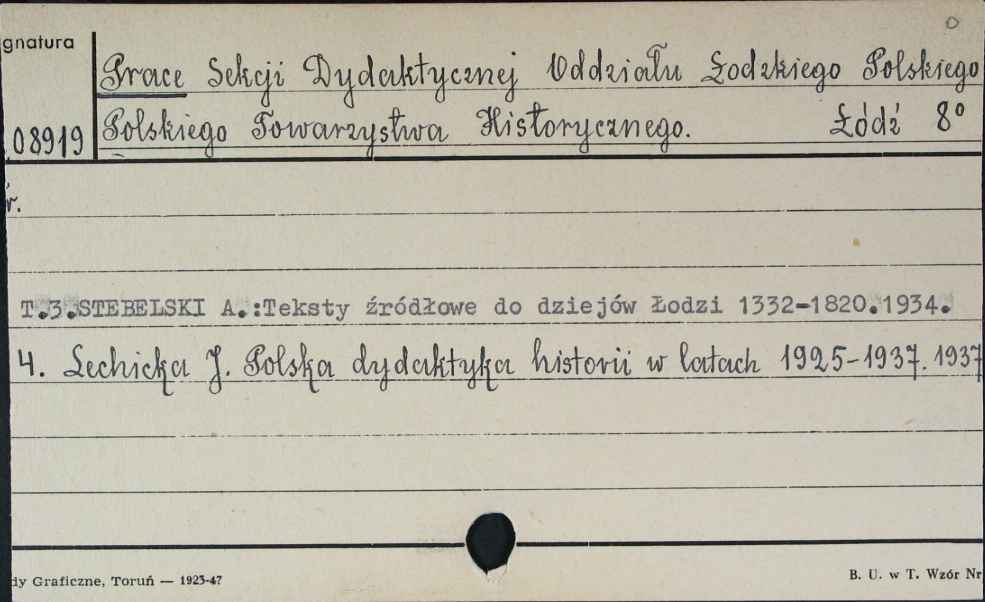 gnatura
Prace Sekcji Dydaktycznej Oddziału Łodzkiego Polskiego
08919 Polskiego Towarzystwa Historycznego. Łódź 8°
r.
T.3.STEBELSKI A.:Teksty źródłowe do dziejów Łodzi 1332-1820.1934.
4. Lechicka J. Polska dydaktyka historii w latach 1925-1937. 1937
dy Graficzne, Toruń — 1923-47
B. U. w T. Wzór Nr